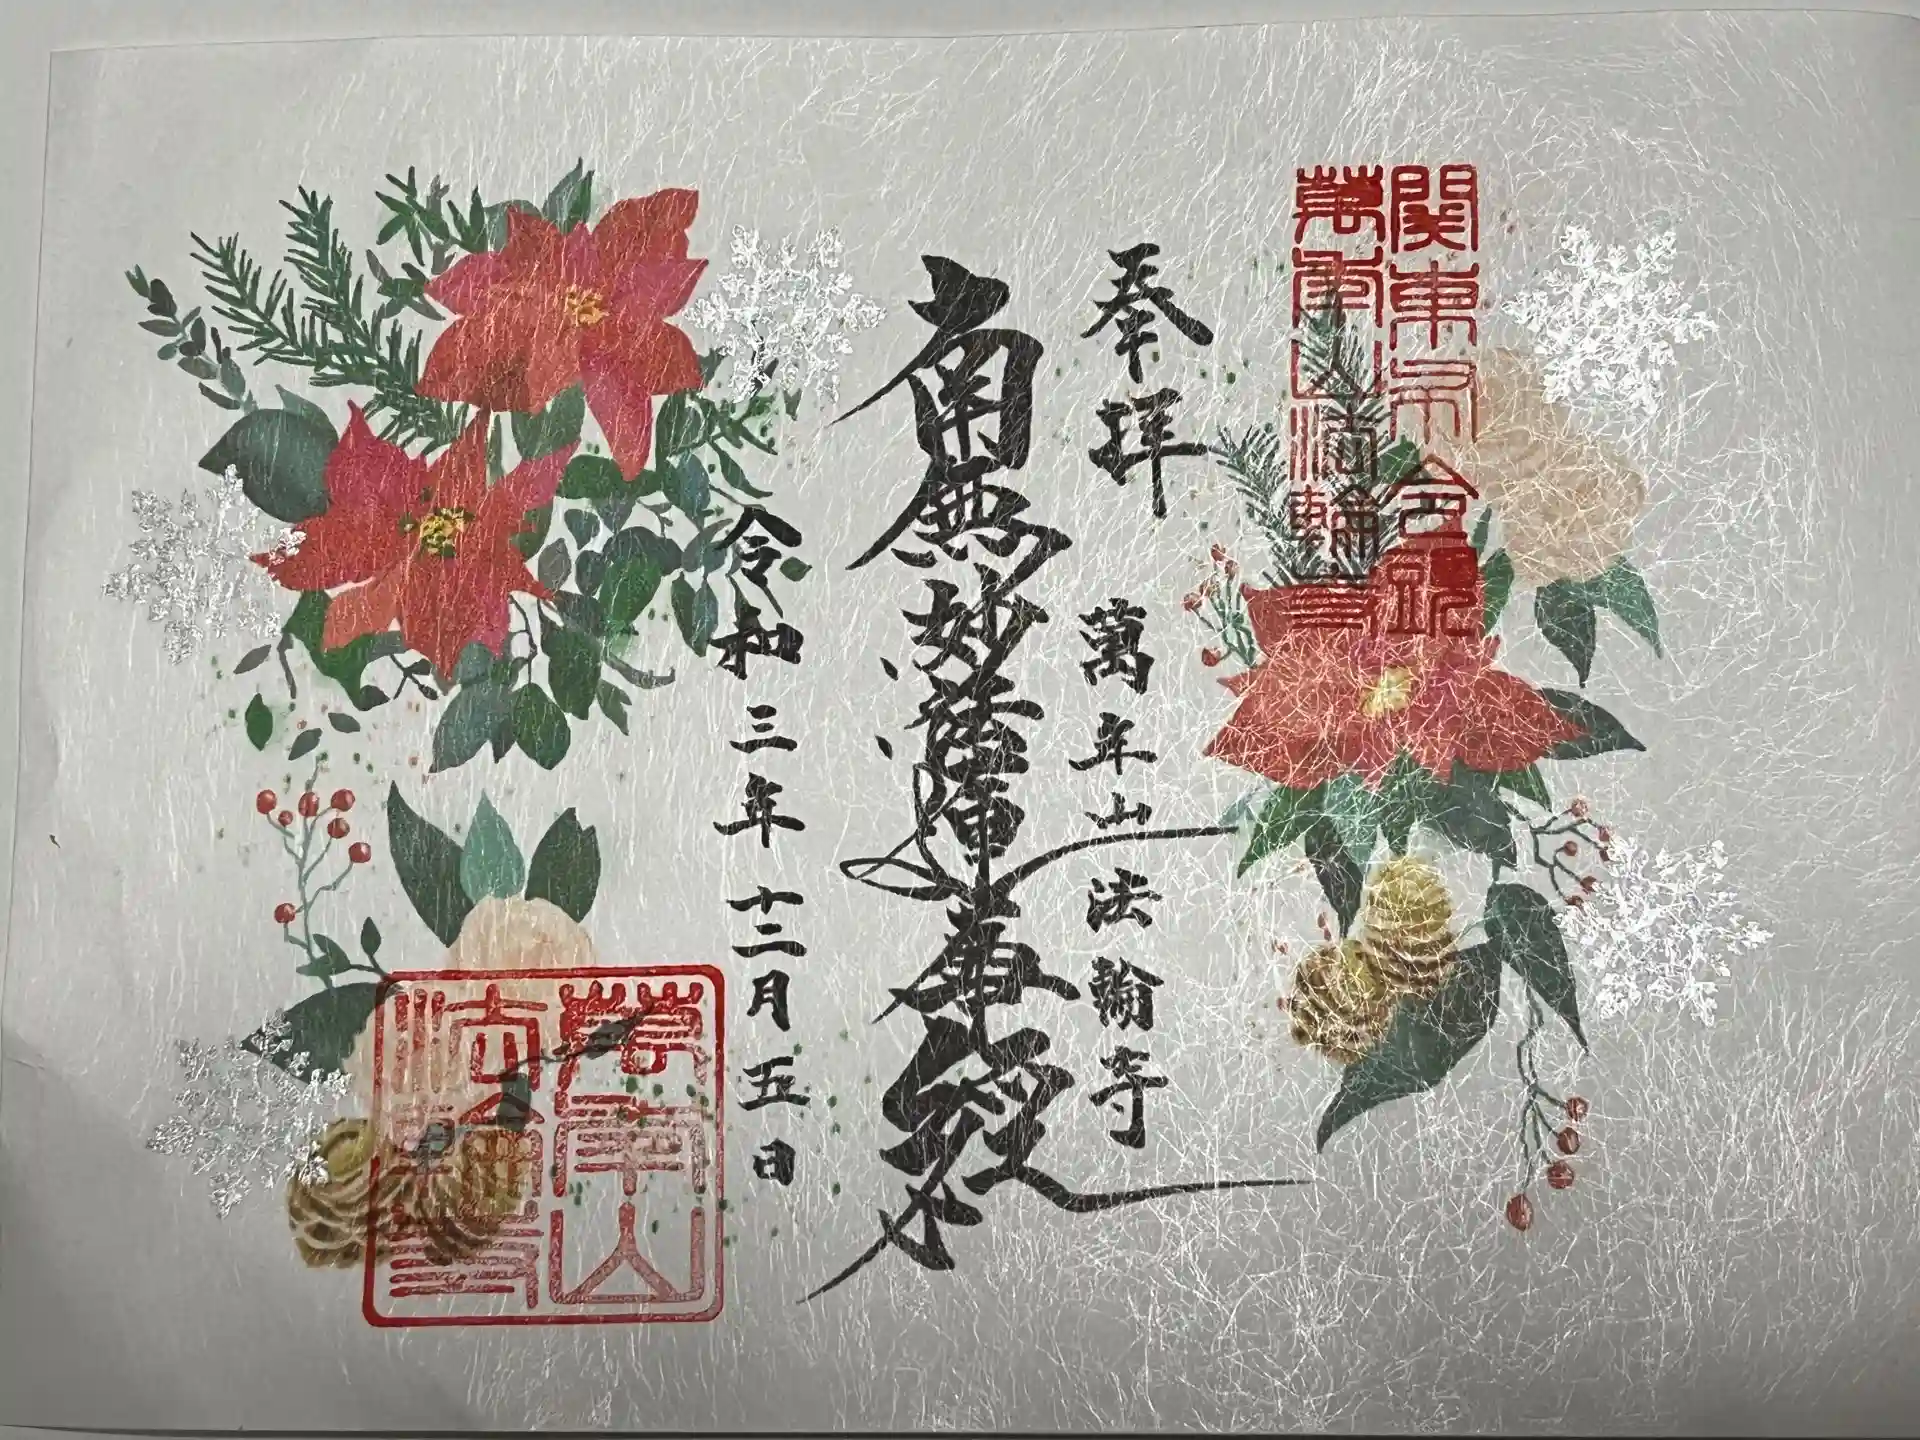 関東
萬年山法輪寺
奉拝
萬年山法輪寺
南無妙法蓮華経
令和三年十二月五日
萬年山
法輪寺